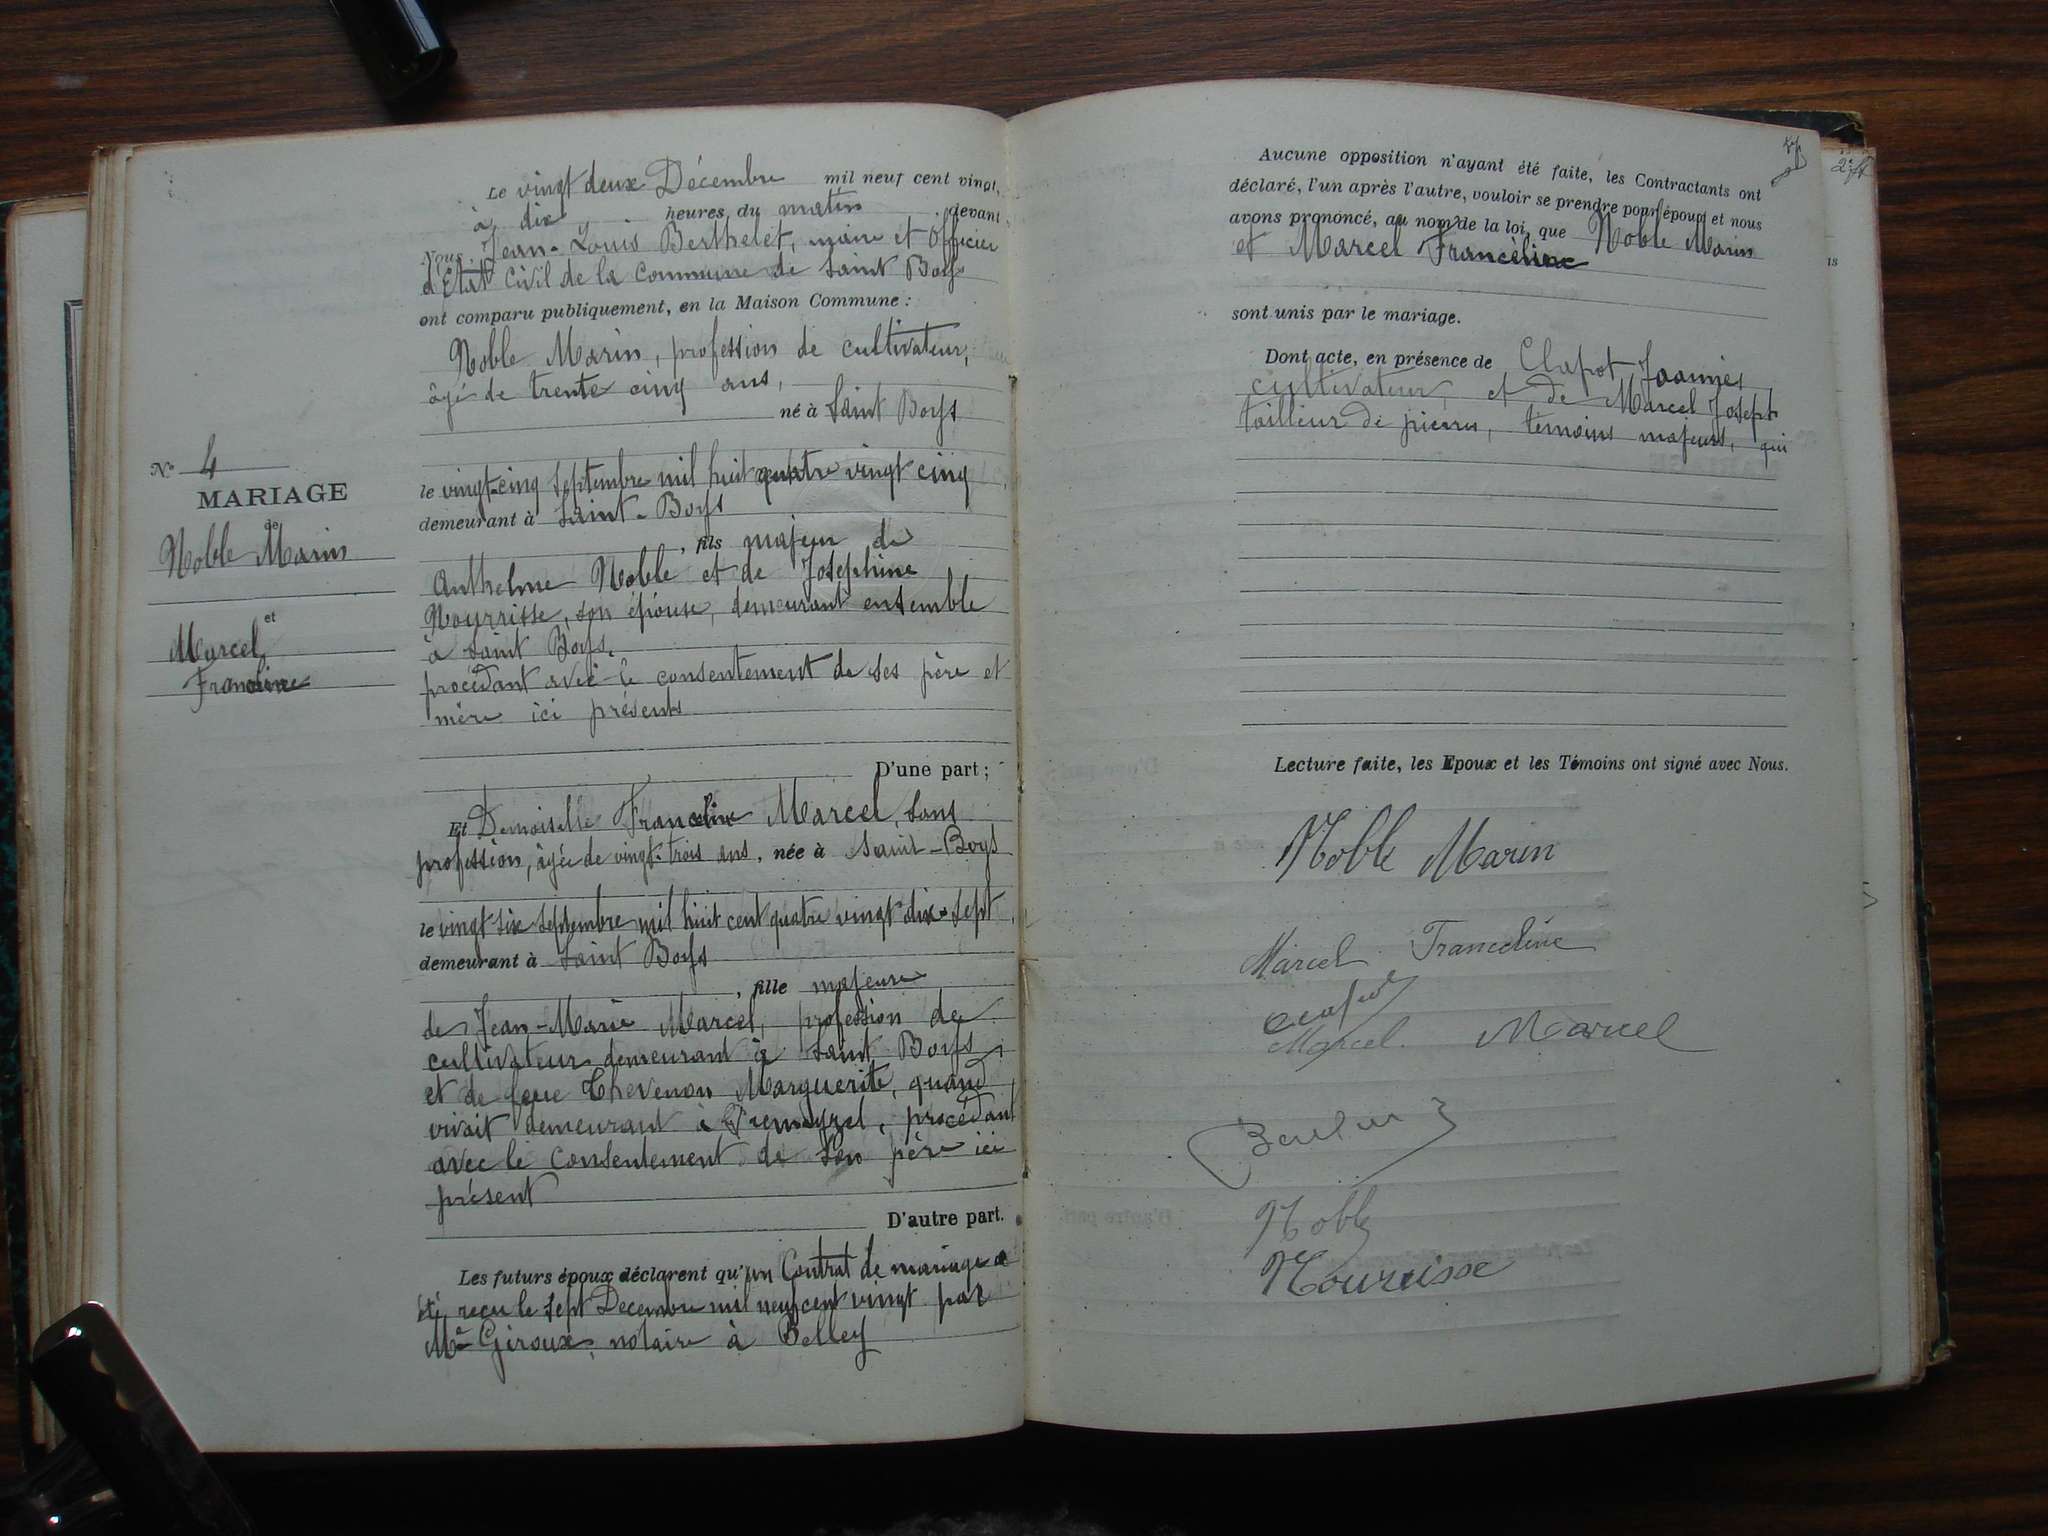 N° 4
MARIAGE
de
Noble Marin
et
Marcel
Franceline
Le vingt deux Décembre mil neuf cent vingt,
à dix heures du matin devant
Nous Jean-Louis Berthelet, maire et Officier
d'Etat Civil de la Commune de Saint Boys
ont comparu publiquement, en la Maison Commune :
Noble Marin, profession de cultivateur,
âgé de trente cinq ans,
né à Saint Boys
le vingt-cinq Septembre mil huit quatre vingt cinq
demeurant à Saint-Boys
, fils majeur de
Anthelme Noble et de Joséphine
Nourrisse, son épouse, demeurant ensemble
à Saint Boys.
procédant avec le consentement de ses père et
mère ici présents
D'une part ;
Et Demoiselle Franceline Marcel, sans
profession, âgée de vingt-trois ans, née à Saint-Boys
le vingt six Septembre mil huit cent quatre vingt dix-sept
demeurant à Saint Boys
, fille majeure
de Jean-Marie Marcel, profession de
cultivateur demeurant à Saint Boys
et de feue Thevenon Marguerite, quand
vivait demeurant à Premeyzel, procédant
avec le consentement de son père ici
présent
D'autre part.
Les futurs époux déclarent qu'un Contrat de mariage a
été reçu le sept Décembre mil neuf cent vingt par
Me Giroux, notaire à Belley
Aucune opposition n'ayant été faite, les Contractants ont
déclaré, l'un après l'autre, vouloir se prendre pour époux et nous
avons prononcé, au nom de la loi, que Noble Marin
et Marcel Franceline
sont unis par le mariage.
Dont acte, en présence de Clapot Joannès
cultivateur, et de Marcel Joseph
tailleur de pierres, témoins majeurs, qui
Lecture faite, les Epoux et les Témoins ont signé avec Nous.
Noble Marin
Marcel Franceline
Marcel Marcel
Noble
Nourrisse